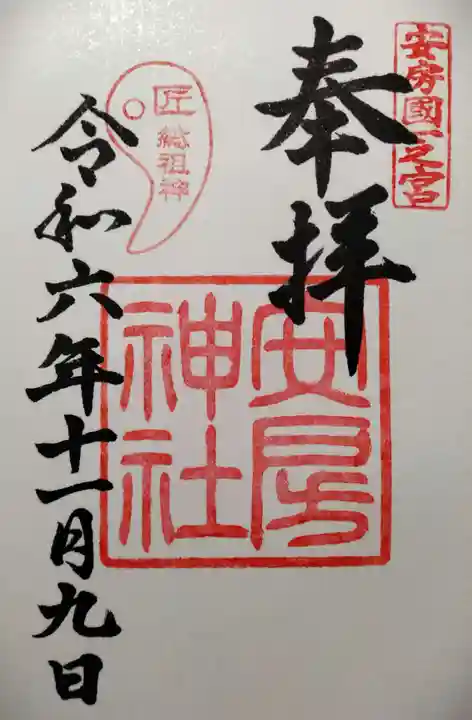 安房國一之宮
奉拝
安房
神社
匠 総祖神
令和六年十一月九日